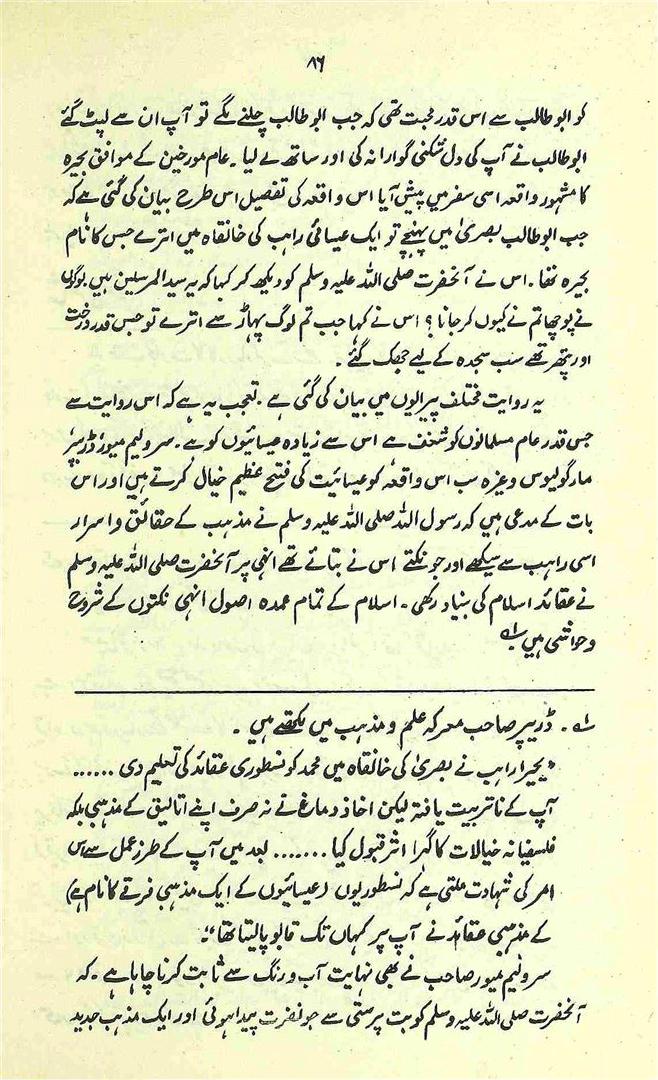 ۸۶
کو ابو طالب سے اس قدر محبت تھی کہ جب ابو طالب چلنے لگے تو آپ ان سے لپٹ گئے
ابو طالب نے آپ کی دل شکنی گوارا نہ کی اور ساتھ لے لیا ۔ عام مورخین کے موافق بحیرہ
کا مشہور واقعہ اسی سفر میں پیش آیا اس واقعہ کی تفصیل اس طرح بیان کی گئی ہے کہ
جب ابو طالب بصریٰ میں پہنچے تو ایک عیسائی راہب کی خانقاہ میں اترے جس کا نام
بحیرہ تھا ۔ اس نے آنحضرت صلی اللہ علیہ وسلم کو دیکھ کر کہا کہ یہ سید المرسلین ہیں لوگوں
نے پوچھا تم نے کیوں کر جانا ؟ اس نے کہا جب تم لوگ پہاڑ سے اترے تو جس قدر درخت
اور پتھر تھے سب سجدہ کے لیے جھک گئے ۔
یہ روایت مختلف پیرایوں میں بیان کی گئی ہے ۔ تعجب یہ ہے کہ اس روایت سے
جس قدر عام مسلمانوں کو شغف ہے اس سے زیادہ عیسائیوں کو ہے ۔ سر ولیم میور ڈریپر
مارگولیوس وغیرہ سب اس واقعہ کو عیسائیت کی فتح عظیم خیال کرتے ہیں اور اس
بات کے مدعی ہیں کہ رسول اللہ صلی اللہ علیہ وسلم نے مذہب کے حقائق و اسرار
اسی راہب سے سیکھے اور جو نکتے اس نے بتائے تھے انہی پر آنحضرت صلی اللہ علیہ وسلم
نے عقائد اسلام کی بنیاد رکھی ۔ اسلام کے تمام عمدہ اصول انہی نکتوں کے شروح
و حواشی ہیں ؎۱
؎۱ ۔ ڈریپر صاحب معرکہ علم و مذہب میں لکھتے ہیں ۔
"بحیرا راہب نے بصریٰ کی خانقاہ میں محمد کو نسطوری عقائد کی تعلیم دی ......
آپ کے ناتربیت یافتہ لیکن اخاذ دماغ نے نہ صرف اپنے اتالیق کے مذہبی بلکہ
فلسفیانہ خیالات کا گہرا اثر قبول کیا ....... بعد میں آپ کے طرز عمل سے اس
امر کی شہادت ملتی ہے کہ نسطوریوں (عیسائیوں کے ایک مذہبی فرقے کا نام ہے)
کے مذہبی عقائد نے آپ پر کہاں تک قابو پا لیا تھا"۔
سر ولیم میور صاحب نے بھی نہایت آب و رنگ سے ثابت کرنا چاہا ہے ۔ کہ
آنحضرت صلی اللہ علیہ وسلم کو بت پرستی سے جو نفرت پیدا ہوئی اور ایک مذہب جدید